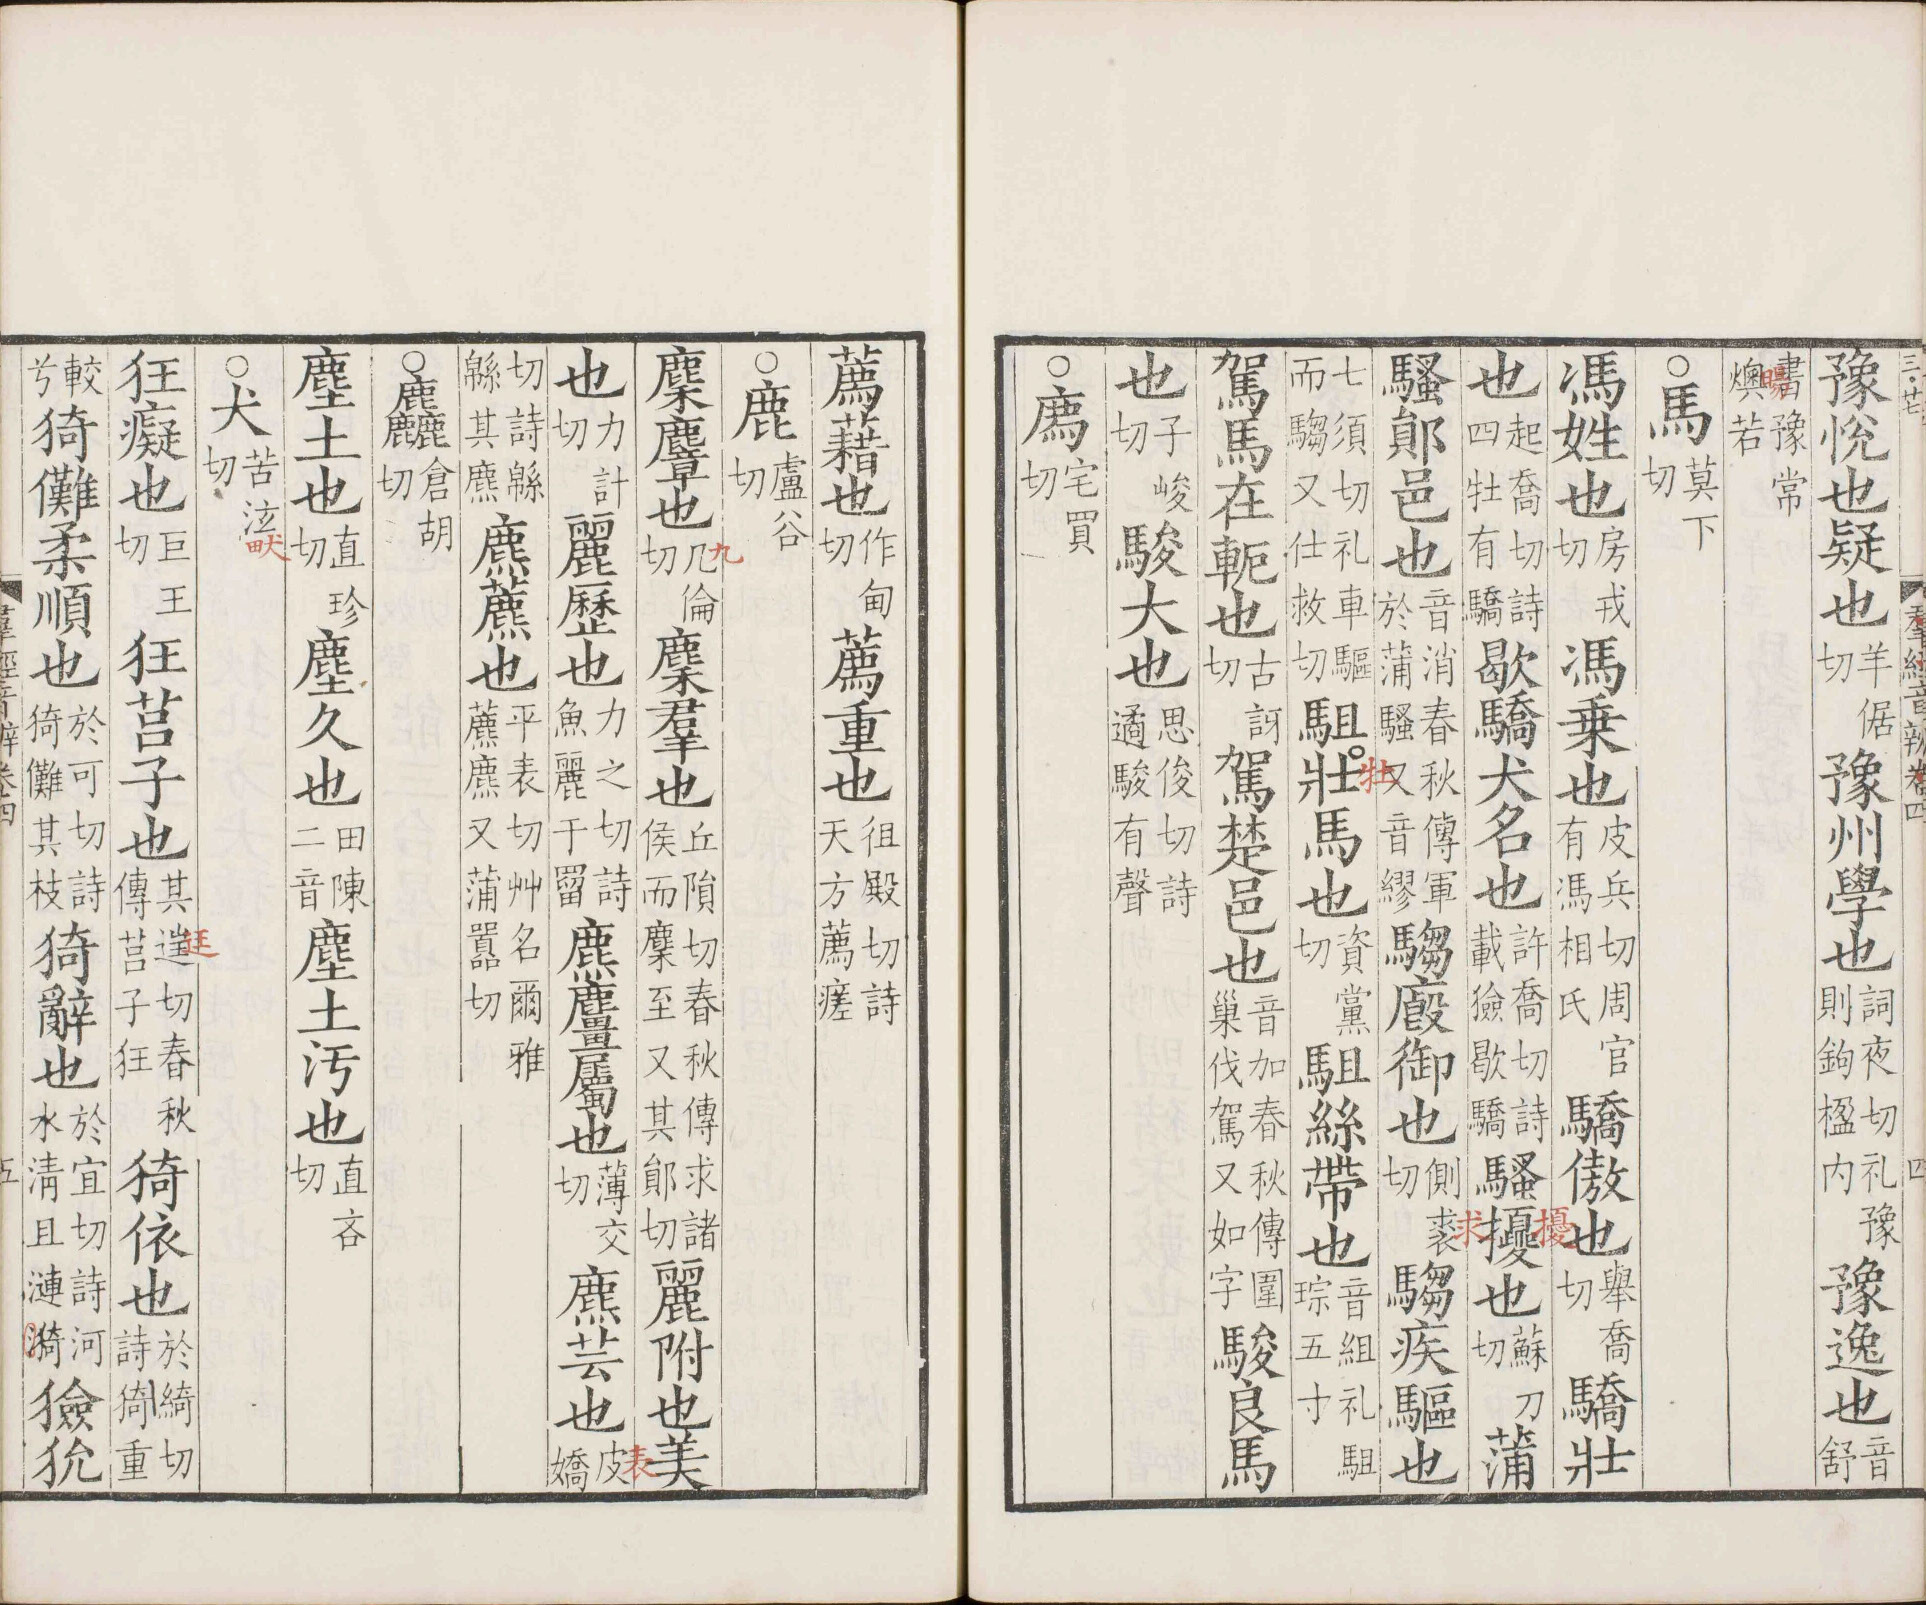 豫恱也疑也羊倨切豫州學也詞夜切礼豫則鉤楹内豫逸也音舒
書豫常燠若
○馬莫下切
馮姓也房戎切馮乗也皮兵切周官有馮相氏驕傲也舉喬切驕壯
也起喬切詩四牡有驕歇驕犬名也許喬切詩載獫歇驕騷擾也蘇刀切蒲
騷鄖邑也音消春秋傳軍於蒲騷又音繆騶廏御也側裘切騶疾驅也
七須切礼車驅而騶又仕救切駔壯馬也資黨切駔絲帶也音組礼駔琮五寸
駕馬在軛也古訝切駕楚邑也音加春秋傳圍巢伐駕又如字駿良馬
也子峻切駿大也思俊切詩遹駿有聲
○廌宅買切
薦藉也作甸切薦重也徂殿切詩天方薦瘥
○鹿盧谷切
麇麞也几倫切麇羣也丘隕切春秋傳求諸侯而麇至又其鄖切麗附也美
也力計切麗歷也力之切詩魚麗于罶麃麠屬也薄交切麃芸也皮嬌
切詩緜緜其麃麃藨也平表切艸名爾雅藨麃又蒲嚻切
○麤倉胡切
塵土也直珍切塵久也田陳二音塵土汚也直吝切
○犬苦泫切
狂癡也巨王切狂莒子也其逬切春秋傳莒子狂猗依也於綺切詩猗重
較兮猗儺柔順也於可切詩猗儺其枝猗辭也於宜切詩河水清且漣漪獫狁
羣經音辨卷四
五